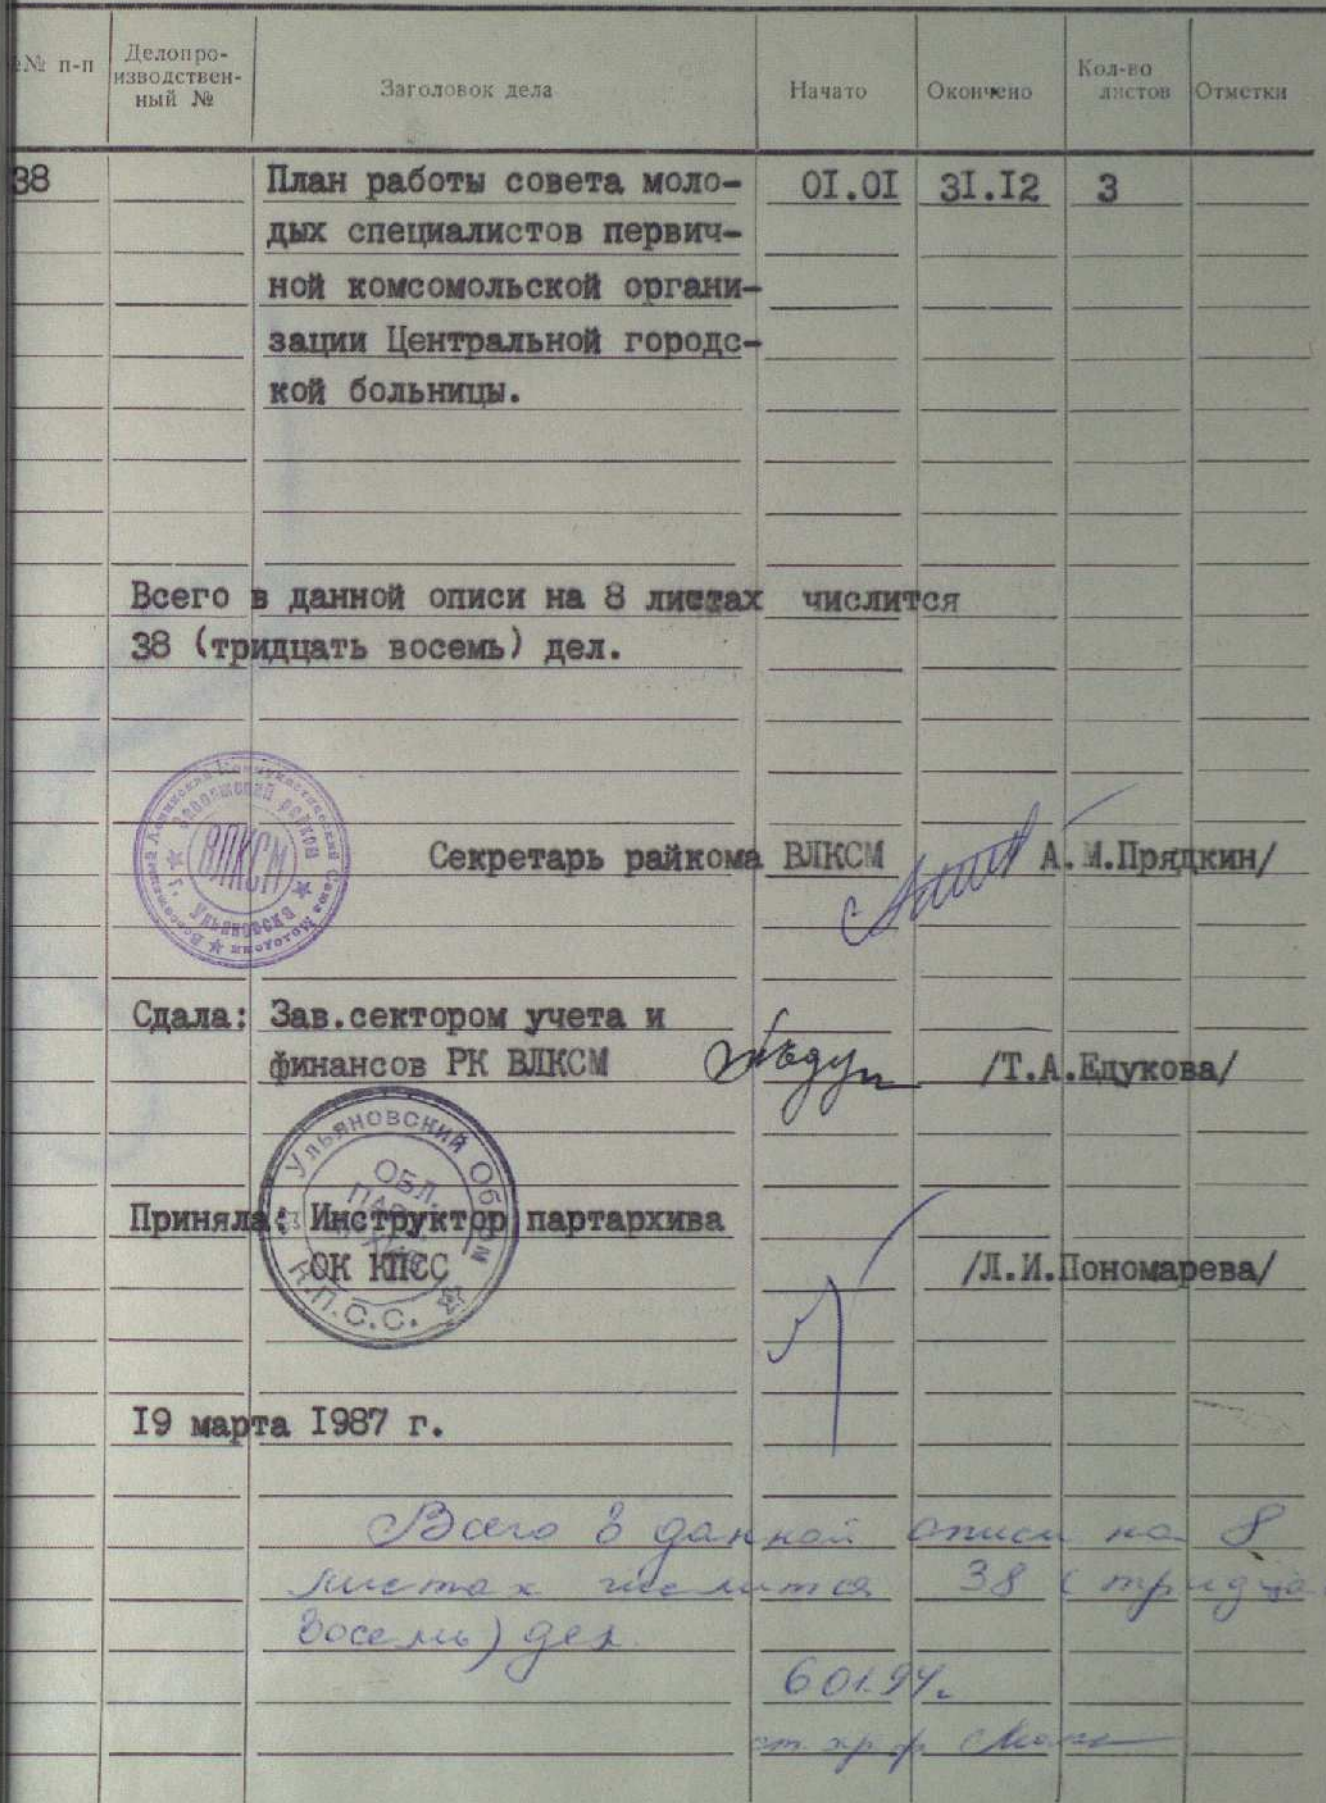 №№ п-п Делопро-изводствен-ный № Заголовок дела Начато Окончено Кол-во листов Отметки
38 План работы совета моло- 01.01 31.12 3
дых специалистов первич-
ной комсомольской органи-
зации Центральной городс-
кой больницы.
Всего в данной описи на 8 листах числится
38 (тридцать восемь) дел.
Всесоюзный Ленинский Коммунистический Союз Молодежи
Заволжский райком
ВЛКСМ
г. Ульяновска
Секретарь райкома ВЛКСМ А.М.Прядкин/
Сдала: Зав.сектором учета и
финансов РК ВЛКСМ /Т.А.Едукова/
Ульяновский Обком
К.П.С.С.
ОБЛ.
Приняла: Инструктор партархива
ОК КПСС /Л.И.Пономарева/
19 марта 1987 г.
Всего в данной описи на 8
листах числится 38 (тридца
восемь) дел.
6 01.94г.